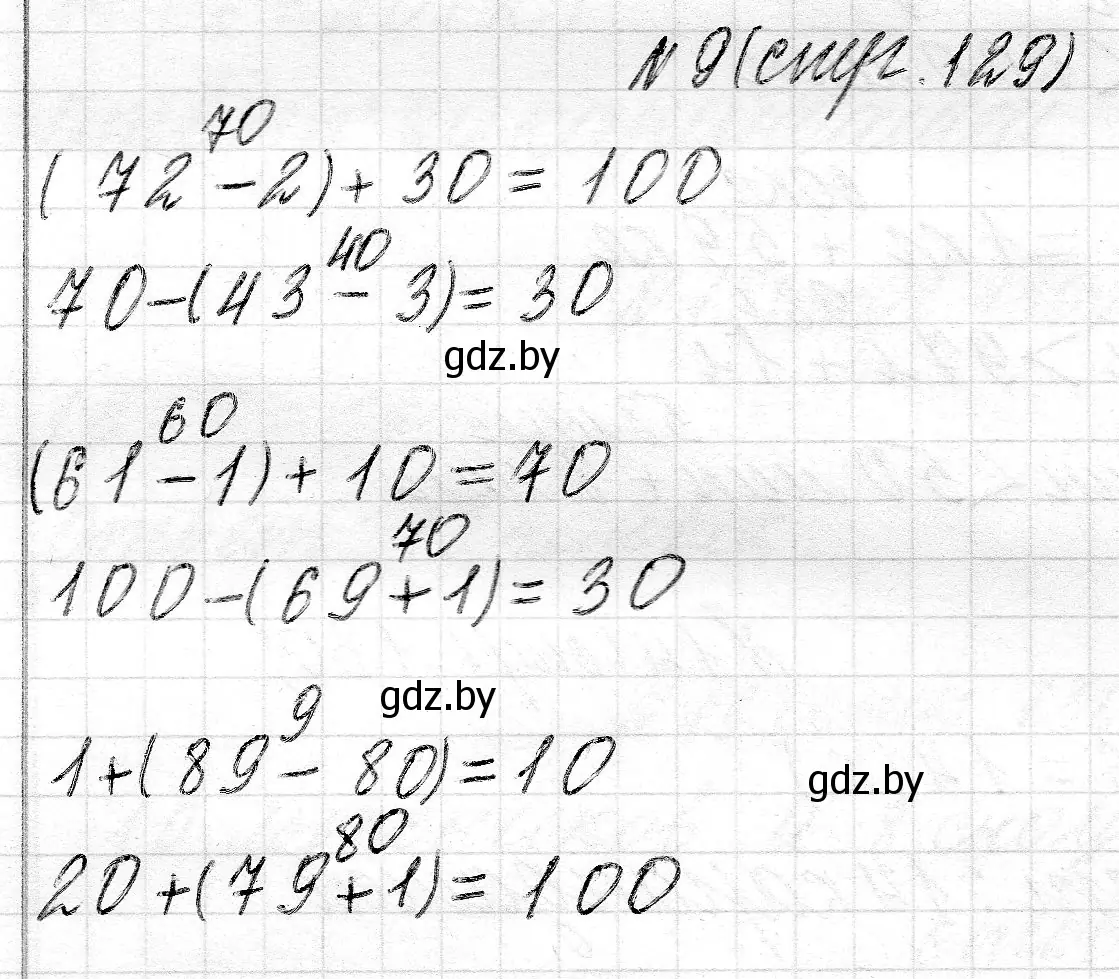 N 9 (стр. 129)
70
(72 - 2) + 30 = 100
40
70 - (43 - 3) = 30
gdz.by
60
(61 - 1) + 10 = 70
70
100 - (69 + 1) = 30
gdz.by
9
1 + (89 - 80) = 10
gdz.by
80
20 + (79 + 1) = 100